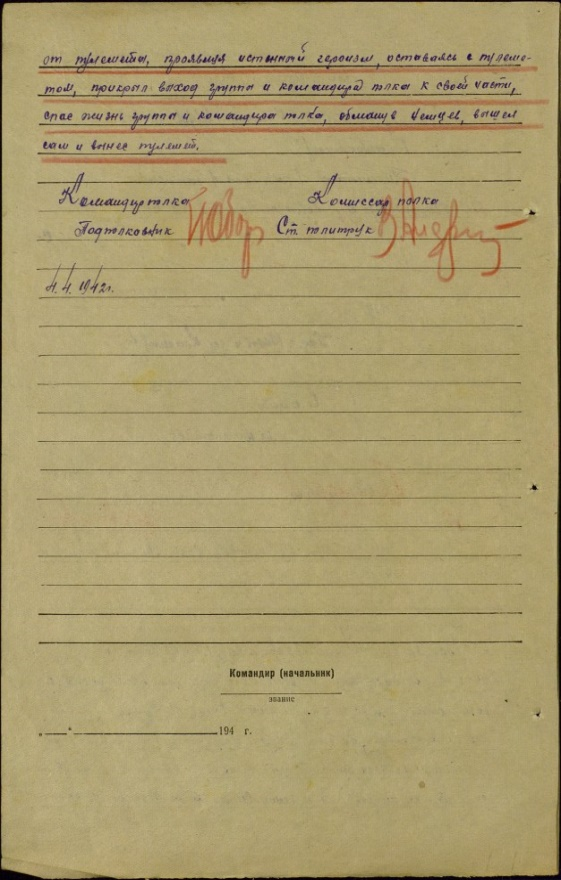 от пулемета, проявляя истинный героизм, оставаясь с пулеме-
том, прикрыл выход группы и командира полка к своей части,
спас жизнь группы и командира полка, обманув немцев, вышел
сам и вынес пулемет.
Командир полка Комиссар полка
Подполковник Ст. политрук
4.4.1942г.
Командир (начальник)
звание
„ “ 194 г.